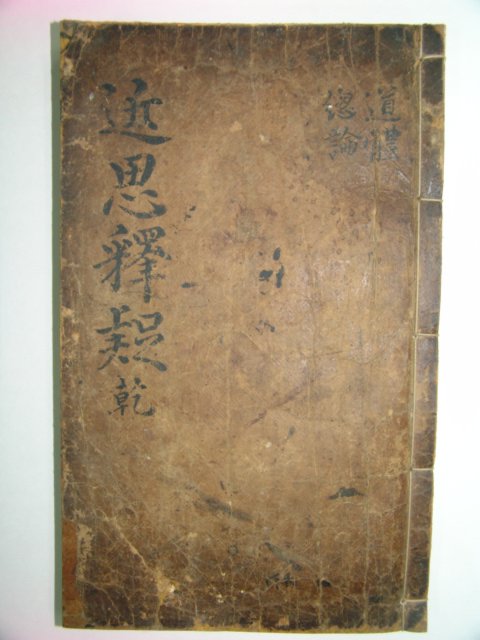 道體
緫論
近思釋疑 乾